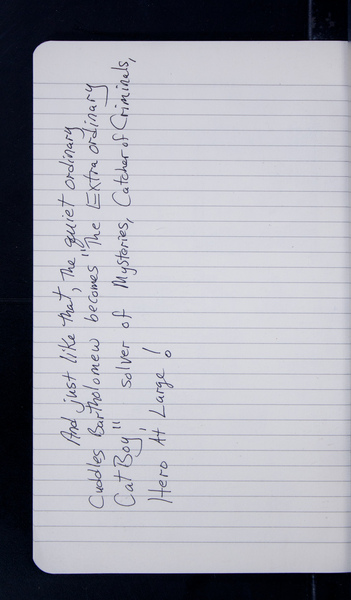 And just like that, the quiet ordinary
Cuddles Bartholomew becomes "The Extra ordinary
Cat Boy" solver of Mysteries, Catcher of Criminals,
Hero At Large!